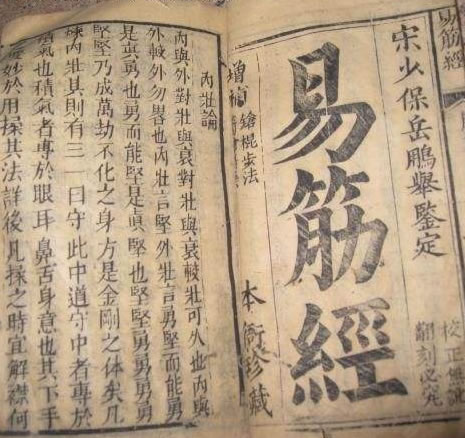 易筋經
宋少保岳鵬舉鑒定
校正無訛
翻刻必究
易筋經
增補
鎗棍步法
本衙珍藏
內壯論
內與外對壯與衰對壯與衰較壯可久也內與
外較外勿畧也內壯言堅外壯言勇堅而能勇
是真勇也勇而能堅是真堅也堅堅勇勇勇勇
堅堅乃成萬劫不化之身方是金剛之體矣凡
練內壯其則有三 曰守此中道守中者專於
積氣也積氣者專於眼耳鼻舌身意也其下手
妙於用揉其法詳後凡揉之時宜解襟仰